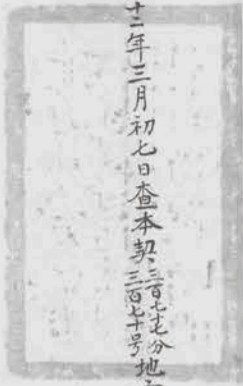 十二年三月初七日查本契三百七十七分三百七十号地